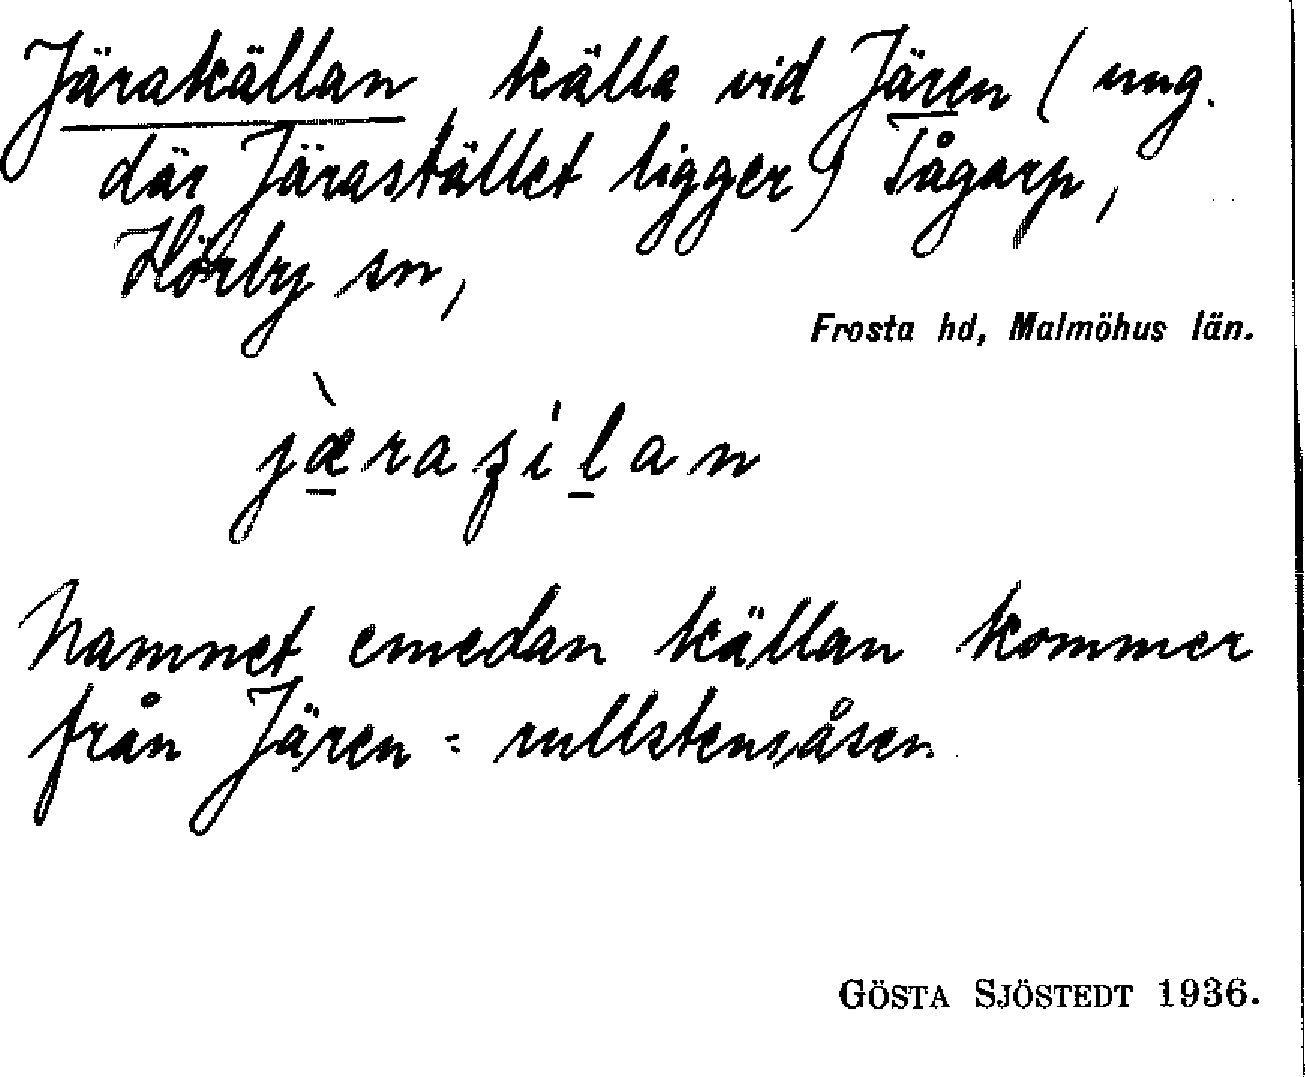 Järakällan, källa vid Jären (ung.
där Järastället ligger) Tågarp,
Hörby sn,
Frosta hd, Malmöhus län.
jæ̠̀raʒil̠an
Namnet emedan källan kommer
från Jären = rullstensåsen.
GÖSTA SJÖSTEDT 1936.